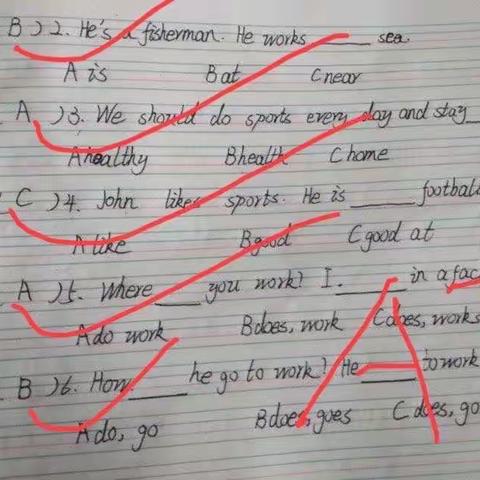 B )2. He's a fisherman. He works ____ sea.
A is B at C near
A )3. We should do sports every day and stay__
A healthy B health C home
C )4. John likes sports. He is ______ football
A like B good C good at
A )5. Where ____ you work? I ______ in a fac
A do work B does, work C does, works
B )6. How ____ he go to work? He ____ to work
A do, go B does, goes C does, go
A